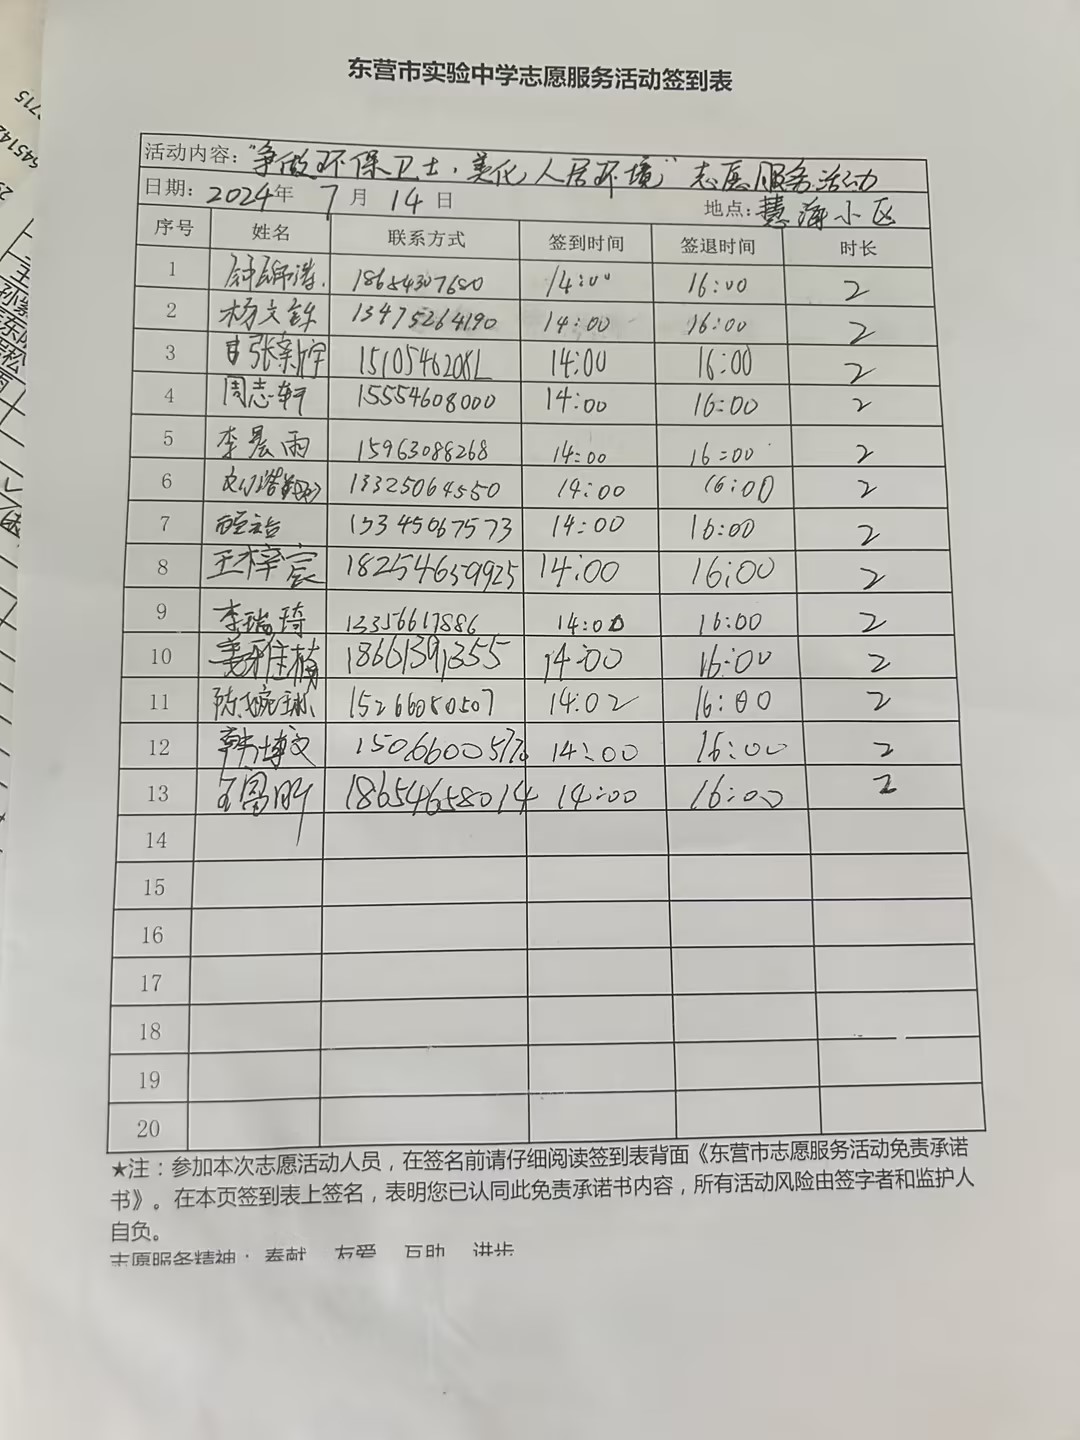 东营市实验中学志愿服务活动签到表
活动内容："争做环保卫士，美化人居环境"志愿服务活动
日期：2024年 7 月 14 日 地点：慧海小区
序号 姓名 联系方式 签到时间 签退时间 时长
1 18654307680 14:00 16:00 2
2 杨文 13475264190 14:00 16:00 2
3 张新宇 14:00 16:00 2
4 周志轩 15554608000 14:00 16:00 2
5 李晨雨 15963088268 14:00 16:00 2
6 13325064550 14:00 16:00 2
7 15345067573 14:00 16:00 2
8 王梓宸 18254659925 14:00 16:00 2
9 李瑞琦 13356617886 14:00 16:00 2
10 姜雅楠 18661391355 14:00 16:00 2
11 陈婉琳 15266080507 14:02 16:00 2
12 韩博文 14:00 16:00 2
13 18654658014 14:00 16:00 2
14
15
16
17
18
19
20
★注：参加本次志愿活动人员，在签名前请仔细阅读签到表背面《东营市志愿服务活动免责承诺
书》。在本页签到表上签名，表明您已认同此免责承诺书内容，所有活动风险由签字者和监护人
自负。
志愿服务精神：奉献 友爱 互助 进步